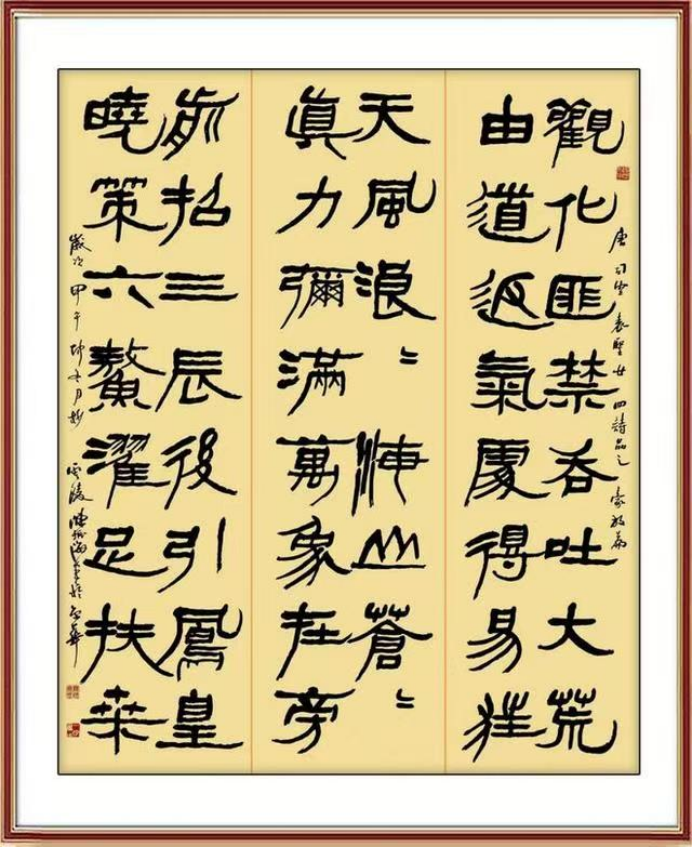 唐司空表聖廿四詩品之豪放篇
觀化匪禁吞吐大荒
由道返氣處得易狂
天風浪〻海山蒼〻
眞力彌滿萬象在旁
前招三辰後引鳳皇
曉策六鰲濯足扶桒
歲次甲午